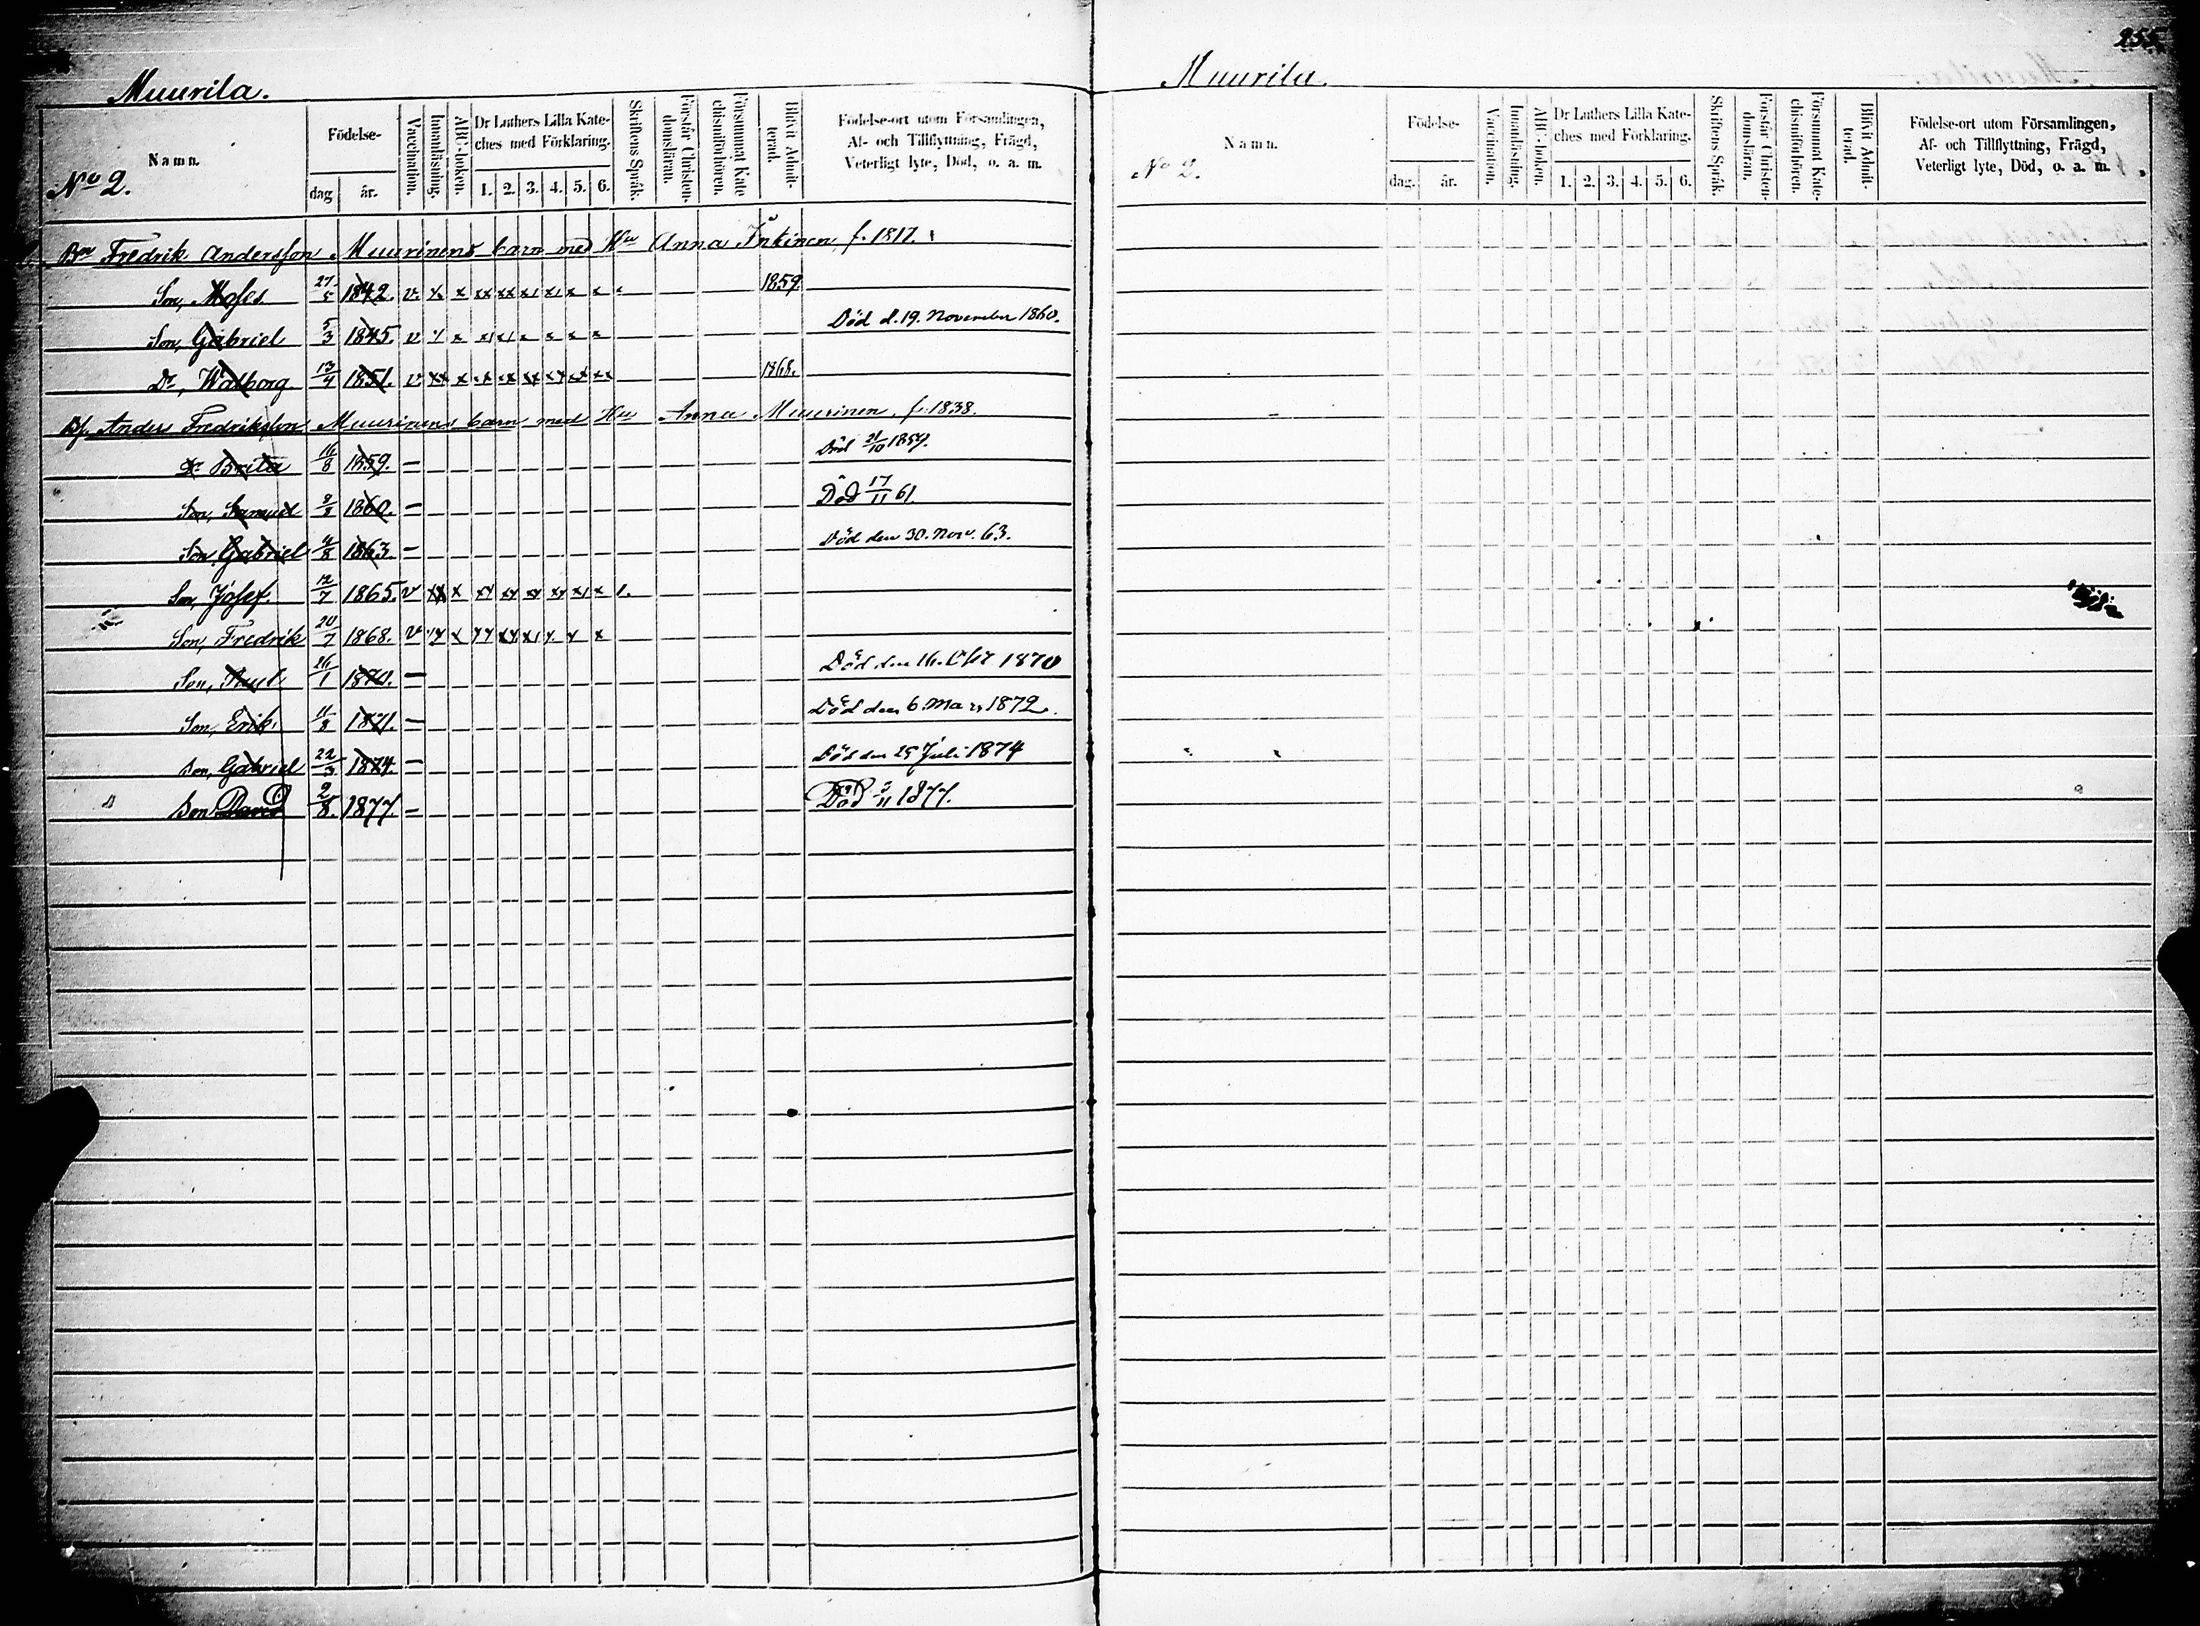 Muurila.
No 2.
Namn.
Födelse-
dag
år.
Vaccination.
Innanläsning.
ABC-boken.
Dr Luthers Lilla Kate-
ches med Förklaring.
1. 2. 3. 4. 5. 6.
Skriftens Språk.
Förstår Christen-
domsläran.
Försummat Kate
chismiförhören.
Blifvit Admit-
terad.
Födelse-ort utom Församlingen,
Af- och Tillflyttning, Frägd,
Veterligt lyte, Död, o. a. m.
Bn Fredrik Andersson Muurinens barn med Hu Anna Inkinen, f. 1817.
Son, Moses 27/5 1842. v. 1859
Son, Gabriel 5/3 1845. v Död d. 19. November 1860.
Dr, Walborg 13/4 1851. v 1868.
Anders Fredriksson Muurinens barn med Hu Anna Muurinen, f. 1838.
Dr Brita 16/8 1859. – Död 21/10 1859.
Son, Samuel 1860. – Död 17/11 61.
Son Gabriel 4/8 1863 – Död den 30. Nov. 63.
Son, Josef. 12/7 1865. v
Son, Fredrik 20/7 1868. v
Son, Paul 26/1 1870. – Död den 16. 1870
Son, Erik. 11/8 1871. – Död den 6. Mars 1872.
Son, Gabriel 22/3 1874. – Död den 25 Juli 1874
Son David 2/8. 1877. – Död 1877.
255
Muurila.
No 2.
Namn.
Födelse-
dag.
år.
Vaccination.
Innanläsning.
ABC-boken.
Dr Luthers Lilla Kate-
ches med Förklaring.
1. 2. 3. 4. 5. 6.
Skriftens Språk.
Förstår Christen-
domsläran.
Försummat Kate-
chismiförhören.
Blifvit Admit-
terad.
Födelse-ort utom Församlingen,
Af- och Tillflyttning, Frägd,
Veterligt lyte, Död, o. a. m.